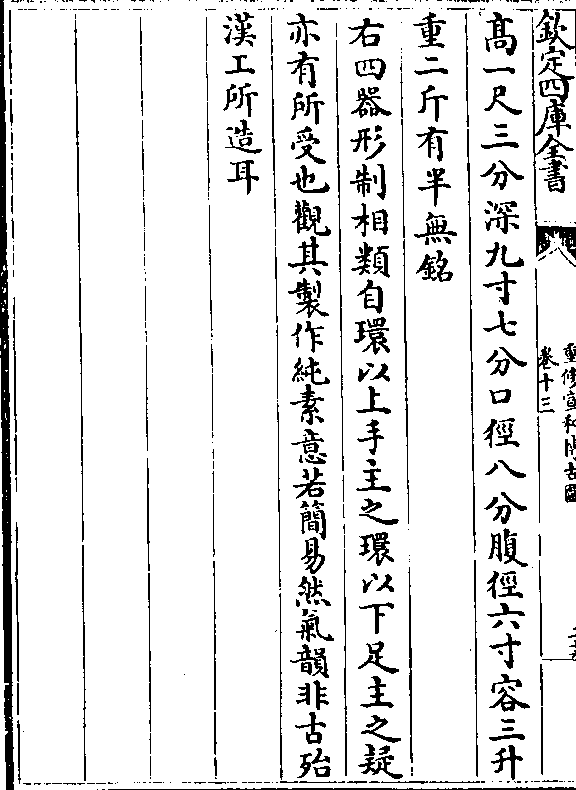 欽定四庫全書
重修宣和博古圖
卷十三
髙一尺三分深九寸七分口徑八分腹徑六寸容三升
重二斤有半無銘
右四器形制相類自環以上手主之環以下足主之疑
亦有所受也觀其製作純素意若簡易然氣韻非古殆
漢工所造耳